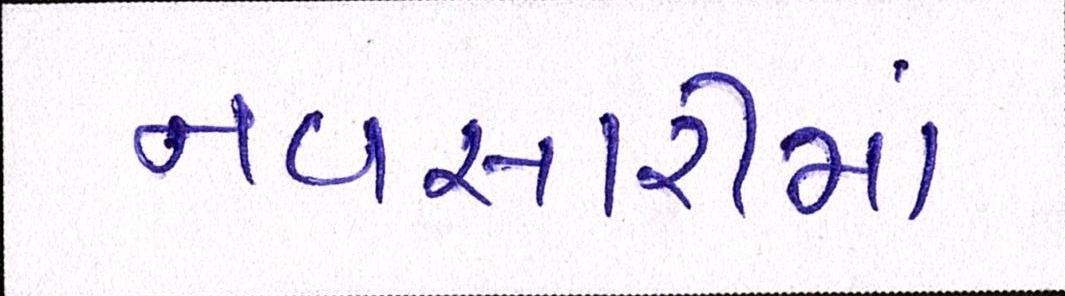 નવસારીમાં